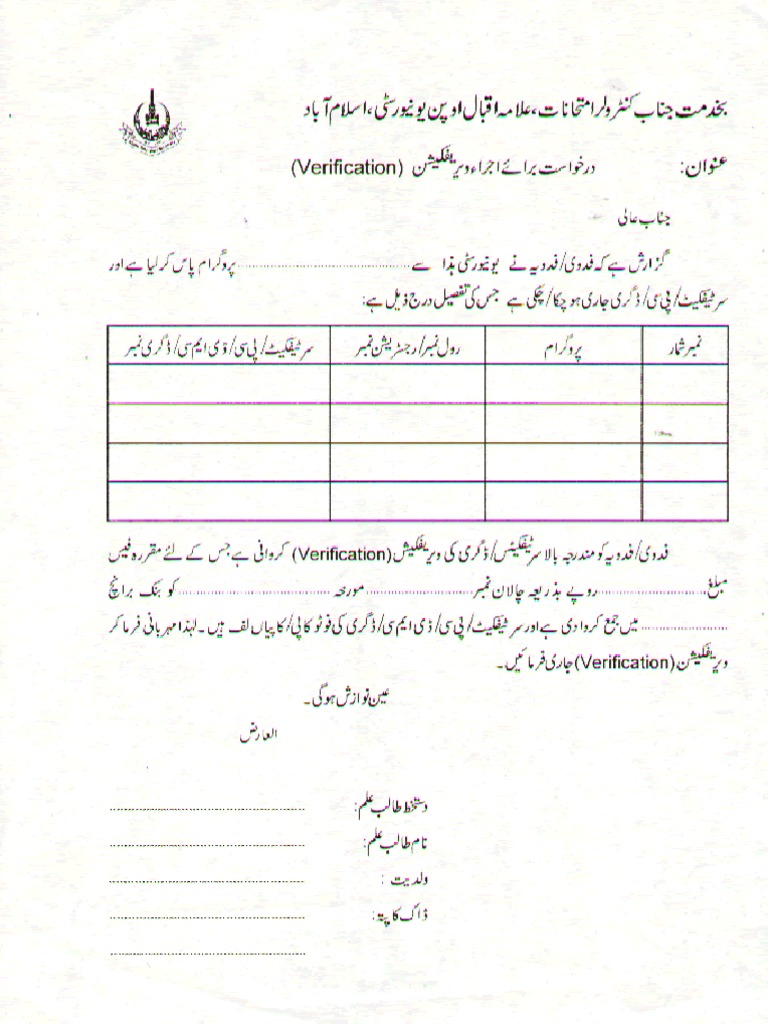 بخدمت جناب کنٹرولر امتحانات، علامہ اقبال اوپن یونیورسٹی، اسلام آباد
عنوان: درخواست برائے اجراء ویریفکیشن (Verification)
جناب عالی
گزارش ہے کہ فدوی/فدویہ نے یونیورسٹی ہذا سے ........................ پروگرام پاس کرلیا ہے اور
سرٹیفکیٹ/پی سی/ڈگری جاری ہوچکا/چکی ہے جس کی تفصیل درج ذیل ہے:
نمبر شمار پروگرام رول نمبر/رجسٹریشن نمبر سرٹیفکیٹ/پی سی/ڈی ایم سی/ڈگری نمبر
فدوی/فدویہ کو مندرجہ بالا سرٹیفکیٹس/ڈگری کی ویریفکیشن (Verification) کروانی ہے جس کے لئے مقررہ فیس
مبلغ ........................ روپے بذریعہ چالان نمبر ........................ مورخہ ........................ کو بنک برانچ
........................ میں جمع کروا دی ہے اور سرٹیفکیٹ/پی سی/ڈی ایم سی/ڈگری کی فوٹو کاپی/کاپیاں لف ہیں۔ لہٰذا مہربانی فرما کر
ویریفکیشن (Verification) جاری فرمائیں۔
عین نوازش ہوگی۔
العارض
دستخط طالب علم: ........................
نام طالب علم: ........................
ولدیت : ........................
ڈاک کا پتہ: ........................
........................